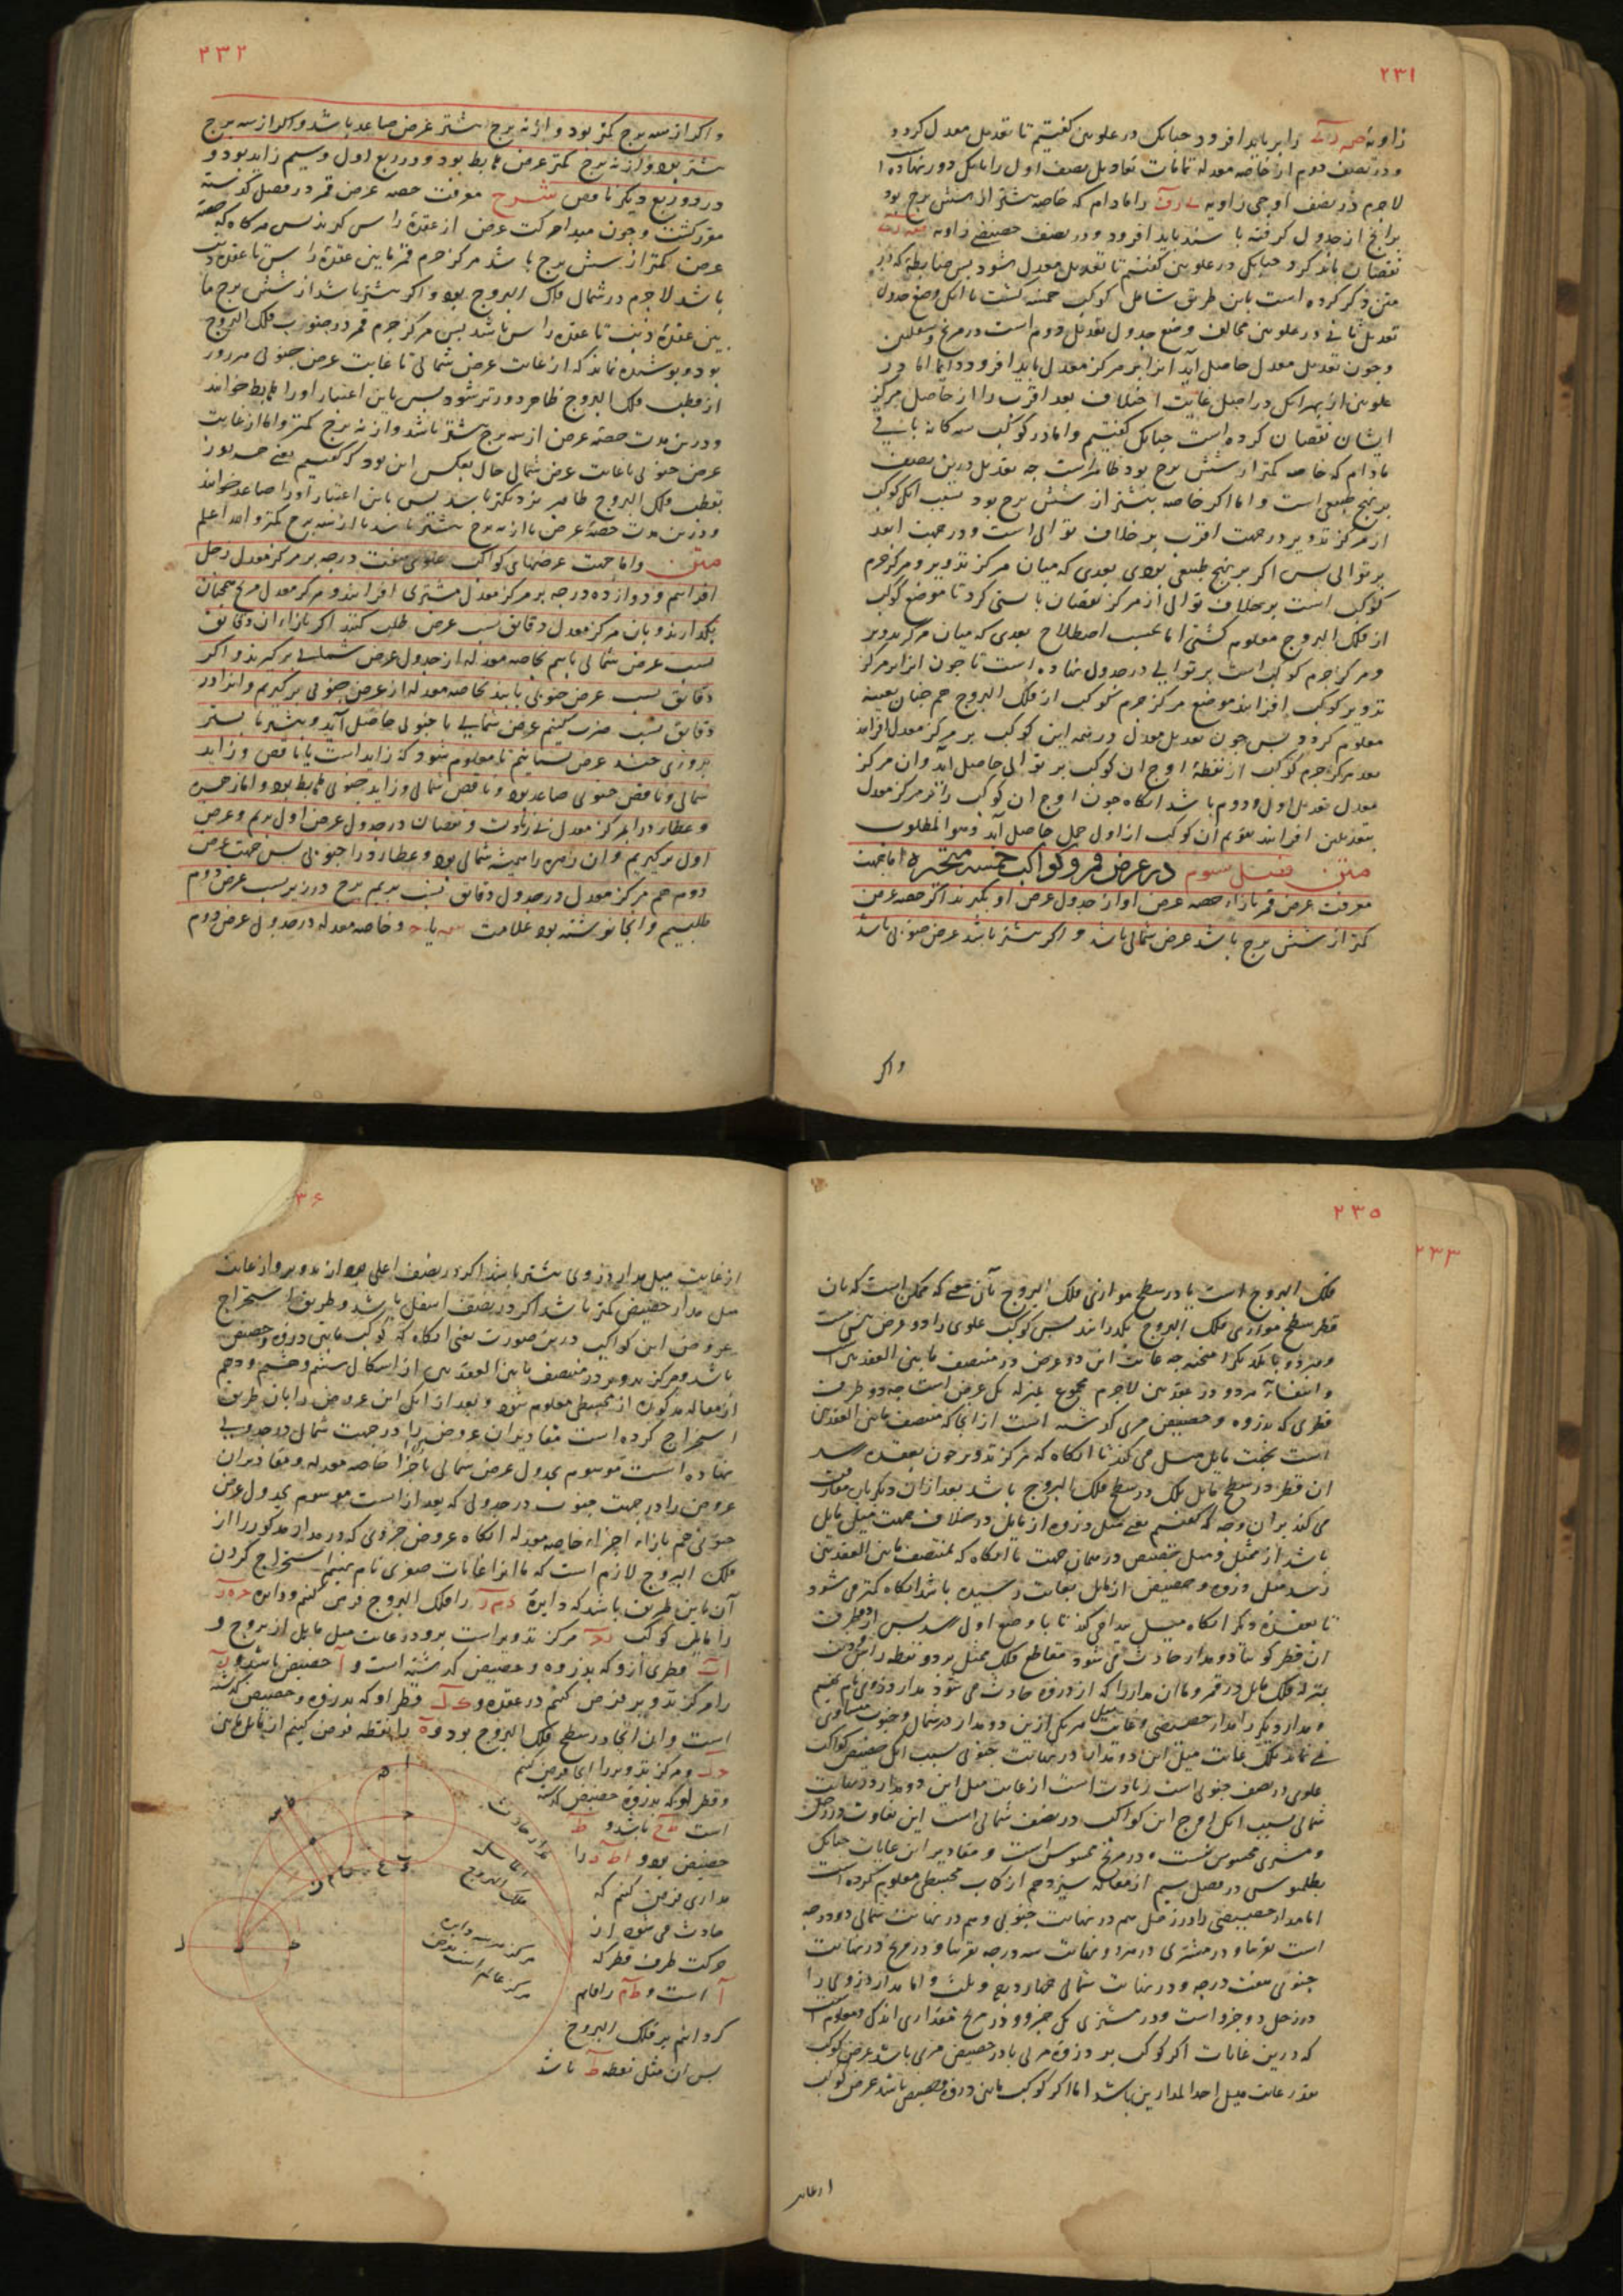 ۲۳۱
زاویهٔ را بر باید افزود چنانک در علویین گفتیم تا تعدیل معدل گردد
و در نصف دوم از خاصه معدله تمامات تعادیل نصف اول را بانک دور نهاده
لاجرم در نصف اوجی زاویه را مادام که خاصه بیشتر از شش برج بود
برانچ از جدول گرفته باشند باید افزود و در نصف حضیضی زاویه
نقصان باید کرد چنانک در علویین گفتیم تا تعدیل معدل شود پس ضابطهٔ که در
متن ذکر کرده است باین طریق شامل کوکب خمسه گشت با آنک وضع جدول
تعدیل ثانی در علویین مخالف وضع جدول تعدیل دوم است در مریخ و سفلیین
و چون تعدیل معدل حاصل آید آنرا بر مرکز معدل باید افزود دایما اما در
علویین از بهر آنک در اصل غایت اختلاف بعد اقرب را از حاصل مرکز
ایشان نقصان کرده است چنانک گفتیم و اما در کوکب سه کانه باقی
مادام که خاصه کمتر از شش برج بود ظاهر است چه تعدیل درین نصف
بر نهج طبیعی است و اما اگر خاصه بیشتر از شش برج بود بسبب آنک کوکب
از مرکز تدویر در جهت اقرب بر خلاف توالی است و در جهت ابعد
بر توالی پس اگر بر نهج طبیعی بودی بعدی که میان مرکز تدویر و مرکز جرم
کوکب است بر خلاف توالی از مرکز نقصان بایستی کرد تا موضع کوکب
از فلک البروج معلوم گشتی اما بحسب اصطلاح بعدی که میان مرکز تدویر
و مرکز جرم کوکب است بر توالی در جدول نهاده است تا چون آنرا بر مرکز
تدویر کوکب افزایند موضع مرکز جرم کوکب از فلک البروج هم چنان بعینه
معلوم گردد پس چون تعدیل معدل درینمه این کوکب بر مرکز معدل افزایند
بعد مرکز جرم کوکب از نقطهٔ اوج آن کوکب بر توالی حاصل آید و آن مرکز
معدل بتعدیل اول و دوم باشد آنگاه چون اوج آن کوکب را بر مرکز معدل
بتعدیلین افزایند تقویم آن کوکب از اول حمل حاصل آید و هو المطلوب
متن فصل سوم در عرض قمر و کواکب خمسه متحیره اما جهت
معرفت عرض قمر بازاء حصه عرض او از جدول عرض او بگیرند اگر حصه عرض
کمتر از شش برج باشد عرض شمالی باشد و اگر بیشتر باشد عرض جنوبی باشد
و اگر
۲۳۲
و اگر از سه برج کمتر بود و از نه برج بیشتر عرض صاعد باشد و اگر از سه برج
بیشتر بود و از نه برج کمتر عرض هابط بود و در ربع اول و سیم زاید بود و
در دو ربع دیگر ناقص شرح معرفت حصه عرض قمر در فصل گذشته
مقرر گشت و چون مبدا حرکت عرض از عقدهٔ راس گیرند پس هرگاه که حصه
عرض کمتر از شش برج باشد مرکز جرم قمر مابین عقدهٔ راس تا عقدهٔ ذنب
باشد لاجرم در شمال فلک البروج بود و اگر بیشتر باشد از شش برج ما
بین عقدهٔ ذنب تا عقدهٔ راس باشد پس مرکز جرم قمر در جنوب فلک البروج
بود و پوشیده نماند که از غایت عرض شمالی تا غایت عرض جنوبی هر روز
از قطب فلک البروج ظاهر دورتر شود پس باین اعتبار او را هابط خوانند
و درین مدت حصهٔ عرض از سه برج بیشتر باشد و از نه برج کمتر و اما از غایت
عرض جنوبی تا غایت عرض شمالی حال بعکس این بود که گفتیم یعنی هر روز
بقطب فلک البروج ظاهر نزدیکتر باشد پس باین اعتبار او را صاعد خوانند
و درین مدت حصهٔ عرض یا از نه برج بیشتر باشد یا از سه برج کمتر والله اعلم
متن و اما جهت عرضهای کواکب علوی هفت درجه بر مرکز معدل زحل
افزاییم و دوازده درجه بر مرکز معدل مشتری افزایند و مرکز معدل مریخ همچنان
بگذارند و بان مرکز معدل دقایق نسب عرض طلب کنند اگر بازاء آن دقایق
نسب عرض شمالی یابیم بخاصه معدله از جدول عرض شمالی برگیرند و اگر
دقایق نسب عرض جنوبی یابند بخاصه معدله از عرض جنوبی برگیریم و آنرا در
دقایق نسب ضرب کنیم عرض شمالی یا جنوبی حاصل آید و بیشتر یا پستر
بروزی چند عرض بستانیم تا معلوم شود که زاید است یا ناقص و زاید
شمالی و ناقص جنوبی صاعد بود و ناقص شمالی و زاید جنوبی هابط بود و اما زهره
و عطارد را بمرکز معدل بی زیادت و نقصان در جدول عرض اول بریم و عرض
اول برگیریم و آن زهره را همیشه شمالی بود و عطارد را جنوبی پس جهت عرض
دوم هم مرکز معدل در جدول دقایق نسب بریم برج در زیر نسب عرض دوم
طلبیم و آنجا نوشته بود علامت یا و خاصه معدله در جدول عرض دوم
۲۳۵
۲۳۳
فلک البروج است یا در سطح موازی فلک البروج بآن معنی که ممکن است که بآن
قطر سطح موازی فلک البروج بگذرانند پس کوکب علوی را دو عرض نیست
و هر دو با یکدیگر امتحنه چه غایت این دو عرض در منتصف مابین العقدتین است
و انتفاء هر دو در عقدتین لاجرم مجموع بمنزله یک عرض است چه دو طرف
قطری که بذروه و حضیض مری گذشته است از آنجا که منتصف مابین العقدتین
است بجهت مایل میل می کند تا آنگاه که مرکز تدویر چون بعقده رسد
آن قطر در سطح مایل بلک در سطح فلک البروج باشد بعد از آن دیگر بار مفارقت
می کند بر آن وجه که گفتیم یعنی میل ذروه از مایل در خلاف جهت میل مایل
باشد از ممثل و میل حضیض در همان جهت تا آنگاه که بمنتصف مابین العقدتین
رسد میل ذروه و حضیض از مایل بغایت رسیده باشد آنگاه کمتر می شود
تا بعقدهٔ دیگر آنگاه میل پیدا می کند تا با وضع اول رسد پس از دو طرف
آن قطر گوییا دو مدار حادث می شود مقاطع فلک ممثل بر دو نقطه راس و ذنب
بمنزله فلک مایل در قمر و ما آن مدار را که از ذروه حادث می شود مدار ذروی نام نهیم
و مدار دیگر را مدار حضیضی و غایت میل هر یکی ازین دو مدار در شمال و جنوب متساوی
نمی ماند بلک غایت میل این دو مدار در نهایت جنوبی بسبب آنک حضیض کواکب
علوی در نصف جنوبی است زیادت است از غایت میل این دو مدار در نهایت
شمالی بسبب آنک اوج این کواکب در نصف شمالی است این تفاوت در زحل
و مشتری محسوس نیست و در مریخ محسوس است و مقادیر این غایات چنانک
بطلمیوس در فصل سیم از مقاله سیزدهم از کتاب مجسطی معلوم کرده است
اما مدار حضیضی را در زحل هم در نهایت جنوبی و هم در نهایت شمالی دو درجه
است تقریبا و در مشتری در هر دو نهایت سه درجه تقریبا و در مریخ در نهایت
جنوبی هفت درجه و در نهایت شمالی چهار درجه و ثلث و اما مدار ذروی را
در زحل دو جزو است و در مشتری یک جزو و در مریخ مقداری اندک و معلوم است
که درین غایات اگر کوکب بر ذروهٔ مری یا در حضیض مری باشد عرض کوکب
بقدر غایت میل احد المدارین باشد اما اگر کوکب مابین ذروه و حضیض باشد عرض کوکب
از غایت
۳۶
از غایت میل مدار ذروی بیشتر باشد اگر در نصف اعلی بود از تدویر و از غایت
میل مدار حضیض کمتر باشد اگر در نصف اسفل باشد و طریق استخراج
عروض این کواکب درین صورت یعنی آنگاه که کوکب مابین ذروه و حضیض
باشد و مرکز تدویر در منتصف مابین العقدتین از اشکال ششم و هشتم و دهم
از مقاله مذکوره از مجسطی معلوم شود و بعد از آنک این عروض را بآن طریق
استخراج کرده است مقادیر آن عروض را در جهت شمال در جدولی
نهاده است موسوم بجدول عرض شمالی باجزاء خاصه معدله و مقادیر آن
عروض را در جهت جنوب در جدولی که بعد از است موسوم بجدول عرض
جنوبی هم بازاء اجزاء خاصه معدله آنگاه عروض جزوی که در مدار مذکور را از
فلک البروج لازم است که ما آنرا غایات صغری نام نهیم استخراج کردن
آن باین طریق باشد که دایرهٔ را فلک البروج فرض کنیم و دایره
را مایل کوکب مرکز تدویر است برو در غایت میل مایل از بروج و
قطری ازو که بذروه و حضیض گذشته است و آ حضیض باشد و
را مرکز تدویر فرض کنیم در عقده و قطر او که بذروه و حضیض گذشته
است و آن آنجا در سطح فلک البروج بود و ه را نقطه فرض کنیم از مایل مابین
و مرکز تدویر را آنجا فرض کنیم
و قطر او که بذروه حضیض گذشته
است باشد و ط
حضیض بود و را
مداری فرض کنیم که
حادث می شود از
حرکت طرف قطر که
آ است و را قایم
گردانیم بر فلک البروج
پس آن مثل نقطه ط باشد
مدار حادث
مایل
فلک البروج
مرکز تدویر دایره
مرکز عالم است بفرض